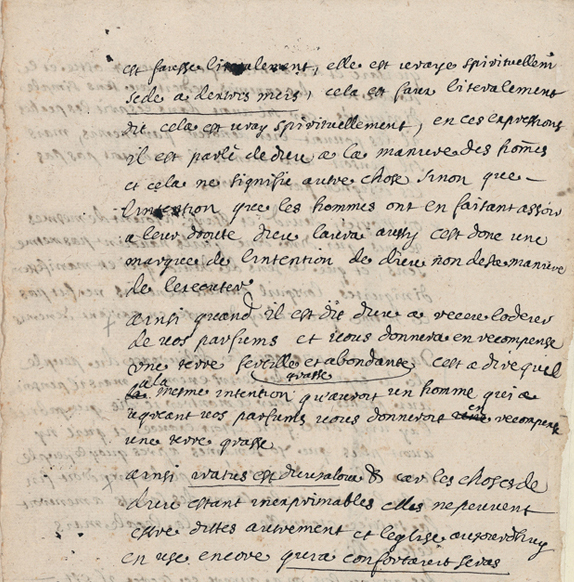 est fausse literalement, elle est vraye spirituellem
sede a dextris meis, cela est faux literalement
dit cela est vray spirituellement, en ces expressions
il est parlé de dieu a la maniere des hom̃es
et cela ne signifie autre chose sinon que –
l'intention que les hommes ont en faisant assoir
a leur droite dieu l'aura aussy c'est donc une
marque de l'intention de dieu non de sa maniere
de l'executer
ainsi quand il est dit dieu a receu l'odeur
de vos parfums et vous donnera en recompense
une terre fertille et abondante c'est a dire quil
grasse
a la
mesme intention qu'auroit un homme qui a
agreant vos parfums vous donneroit en recompense
une terre grasse
ainsi iratus est dieu jaloux &c car les choses de
dieu estant inexprimables elles ne peuvent
estre dittes autrement et l'eglise aujourdhuy
en use encore quia confortavit seras